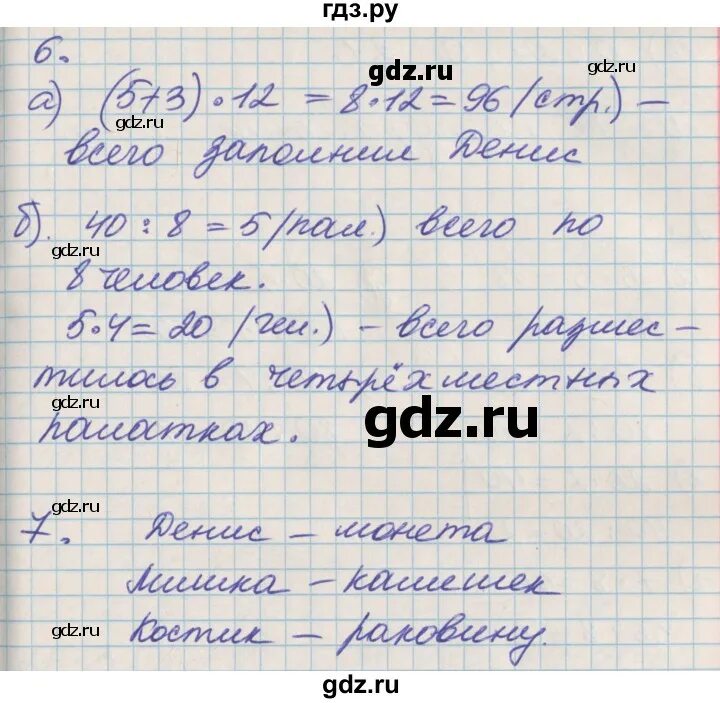 гдз.ру
6.
gdz.ru
gdz.ru
а) (5+3)·12 = 8·12 = 96 (стр.) –
gdz.ru
всего заполнил Денис
б). 40 : 8 = 5 (пал.) всего по
gdz.ru
8 человек.
5·4 = 20 (чел.) – всего размес-
тилось в четырёхместных
gdz.ru
палатках.
gdz.ru
gdz.ru
7. Денис – монета
Мишка – камешек
gdz.ru
Костик – раковину.
gdz.ru